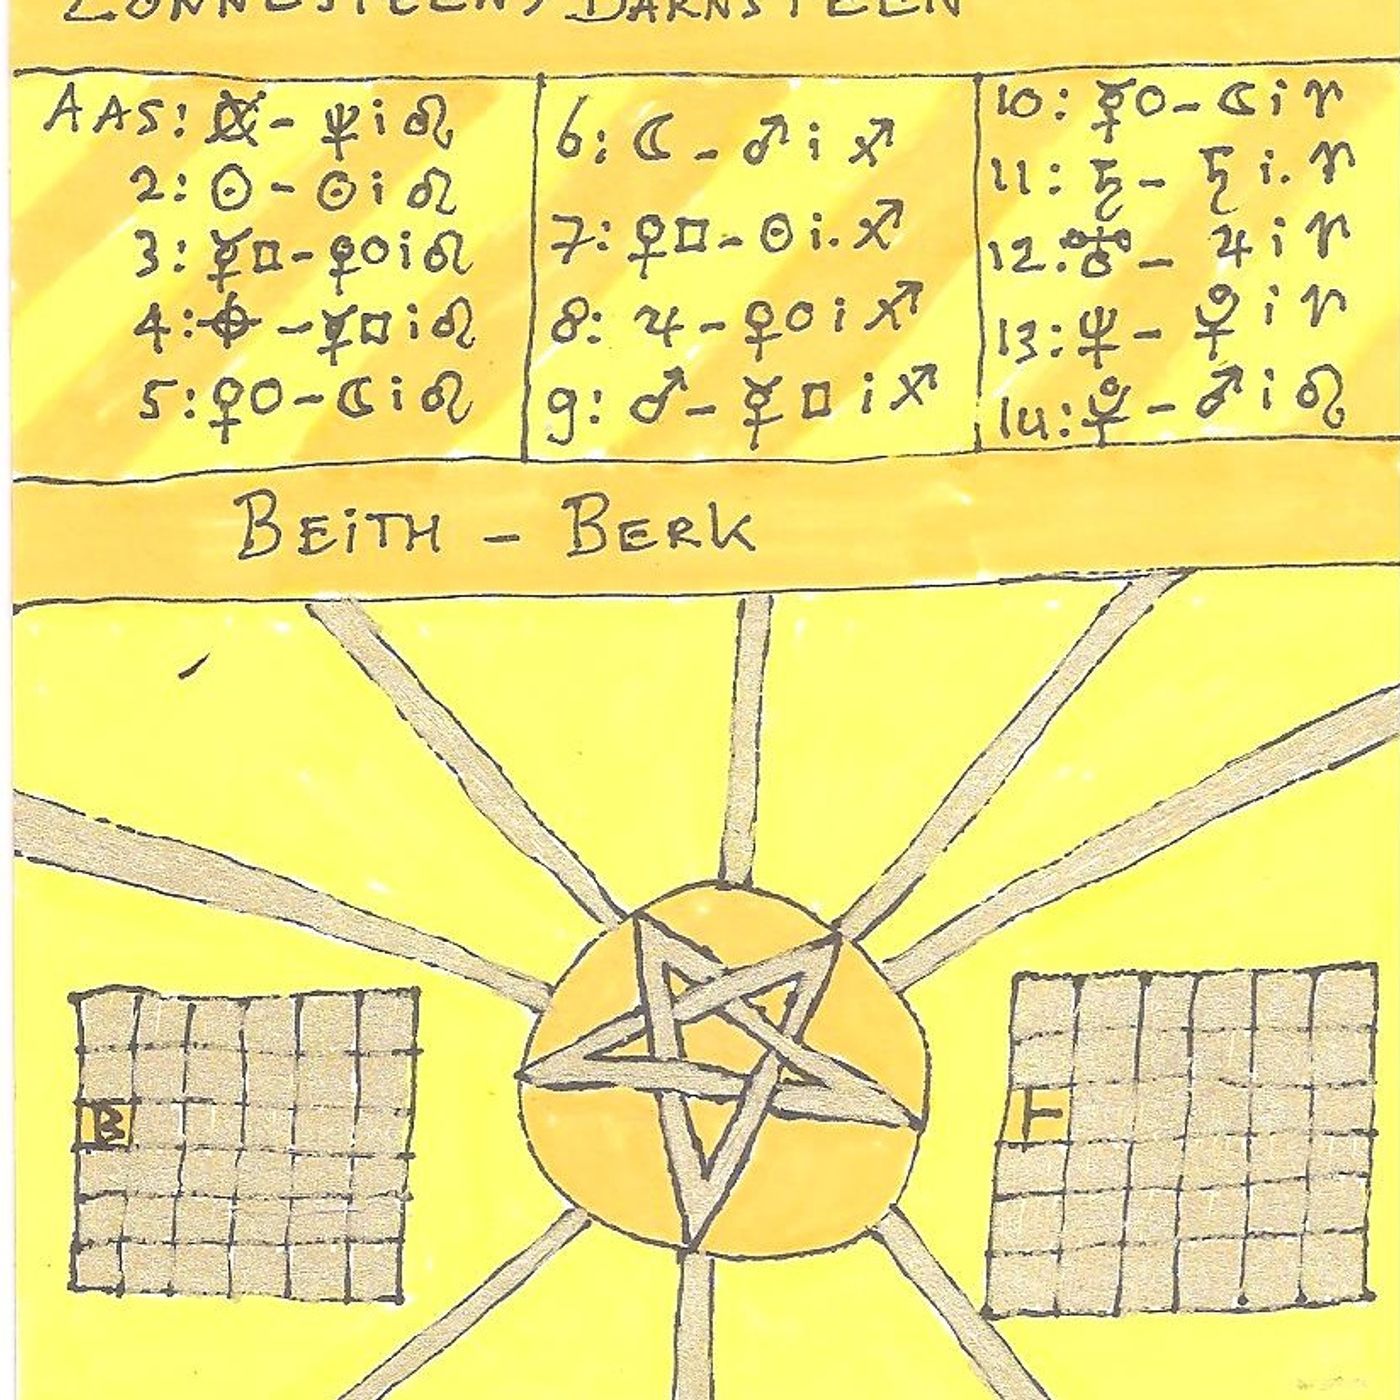 ZONNESTEEN, BARNSTEEN
AAS: ⊗ - ♆ i ♌
2: ☉ - ☉ i ♌
3: ☿□ - ♀○ i ♌
4: ⌖ - ☿□ i ♌
5: ♀○ - ☾ i ♌
6: ☾ - ♂ i ♐
7: ♀□ - ☉ i. ♐
8: ♃ - ♀○ i ♐
9: ♂ - ☿□ i ♐
10: ☿○ - ☾ i ♈
11: ♄ - ♄ i. ♈
12: ♅ - ♃ i ♈
13: ♆ - ⯓ i ♈
14: ⯓ - ♂ i ♌
BEiTH - BERK
B
F